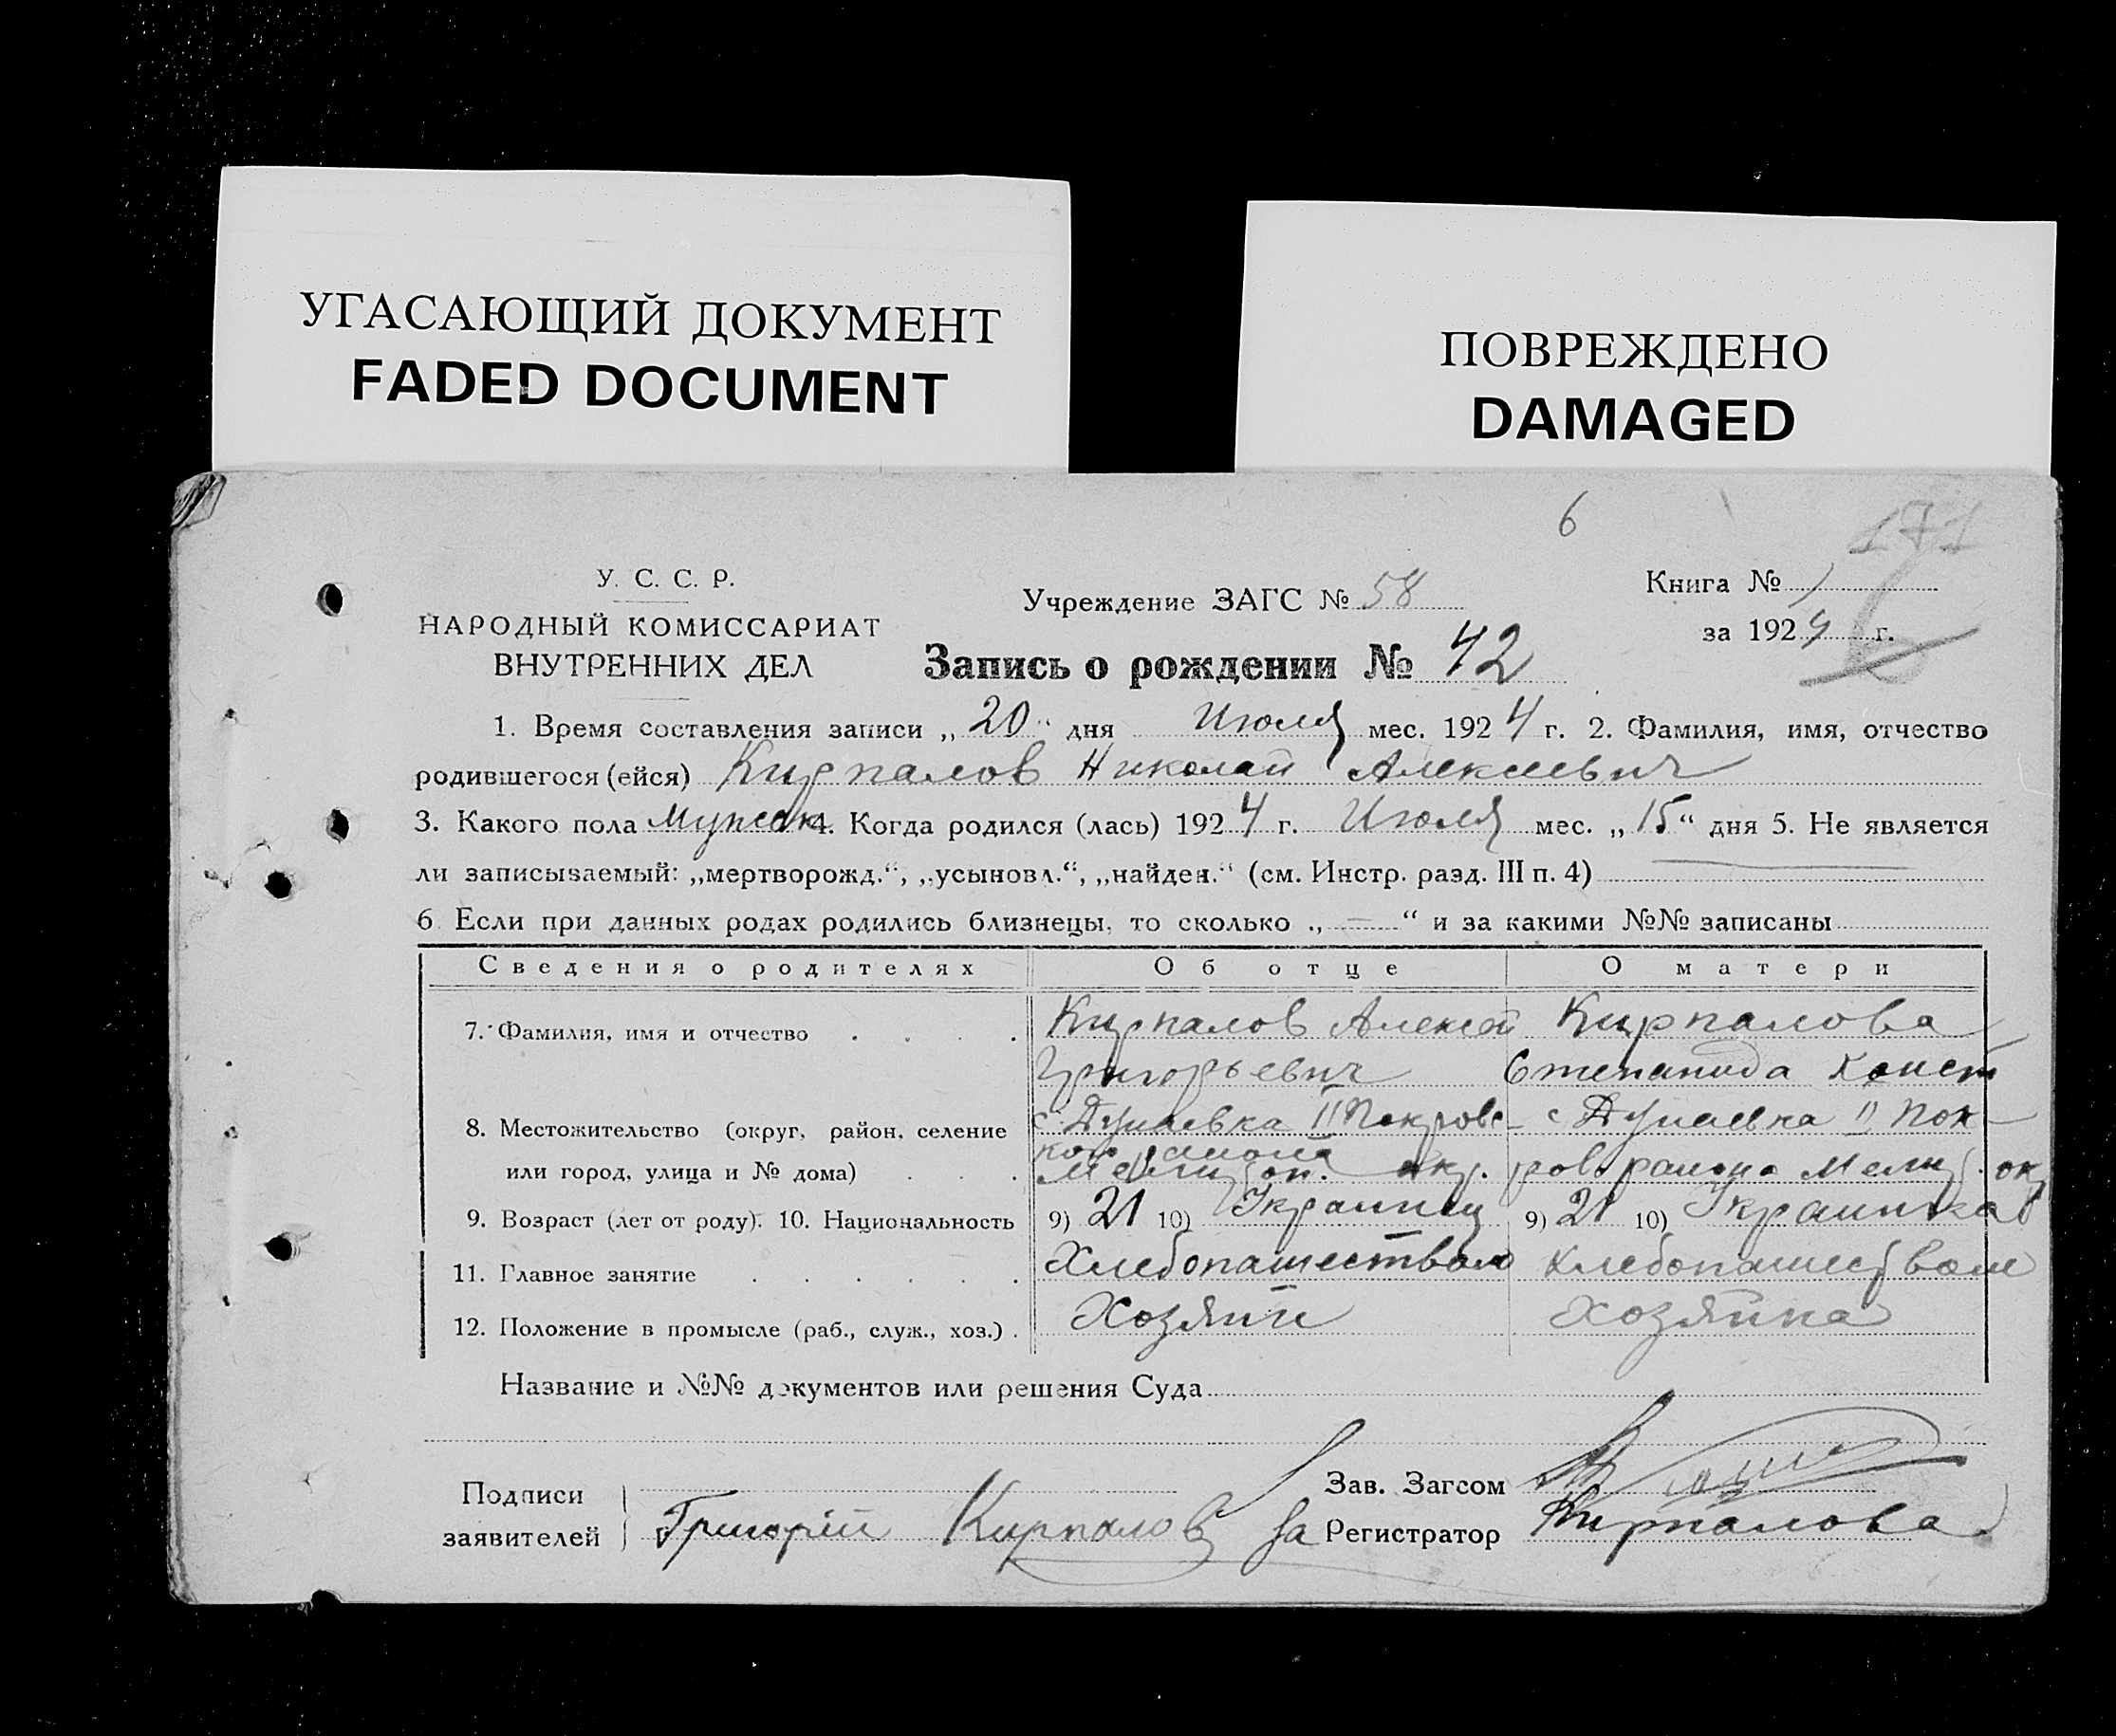 УГАСАЮЩИЙ ДОКУМЕНТ
FADED DOCUMENT
ПОВРЕЖДЕНО
DAMAGED
6
171
У. С. С. Р.
НАРОДНЫЙ КОМИССАРИАТ
ВНУТРЕННИХ ДЕЛ
Учреждение ЗАГС № 58
Книга № 1
за 1924 г.
Запись о рождении № 42
1. Время составления записи „20“ дня Июля мес. 1924 г. 2. Фамилия, имя, отчество
родившегося (ейся) Кирпалов Николай Алексеевич
3. Какого пола Мужск 4. Когда родился (лась) 1924 г. Июля мес. „15“ дня 5. Не является
ли записываемый: „мертворожд.“, „усыновл.“, „найден.“ (см. Инстр. разд. III п. 4)
6 Если при данных родах родились близнецы, то сколько „—“ и за какими №№ записаны
Сведения о родителях Об отце О матери
7. Фамилия, имя и отчество Кирпалов Алексей Кирпалова
Григорьевич Степанида Конст
8. Местожительство (округ, район, селение с. Дунаевка II Покровс- с Дунаевка II Пок-
или город, улица и № дома) кого района Мелитоп. окр. ров. района Мелит. окр
9. Возраст (лет от роду). 10. Национальность 9) 21 10) Украинец 9) 21 10) Украинка
11. Главное занятие Хлебопашеством Хлебопашеством
12. Положение в промысле (раб., служ., хоз.) Хозяин Хозяйка
Название и №№ документов или решения Суда
Подписи
заявителей Григорій Кирпалов
Зав. Загсом
За Регистратор Кирпалова